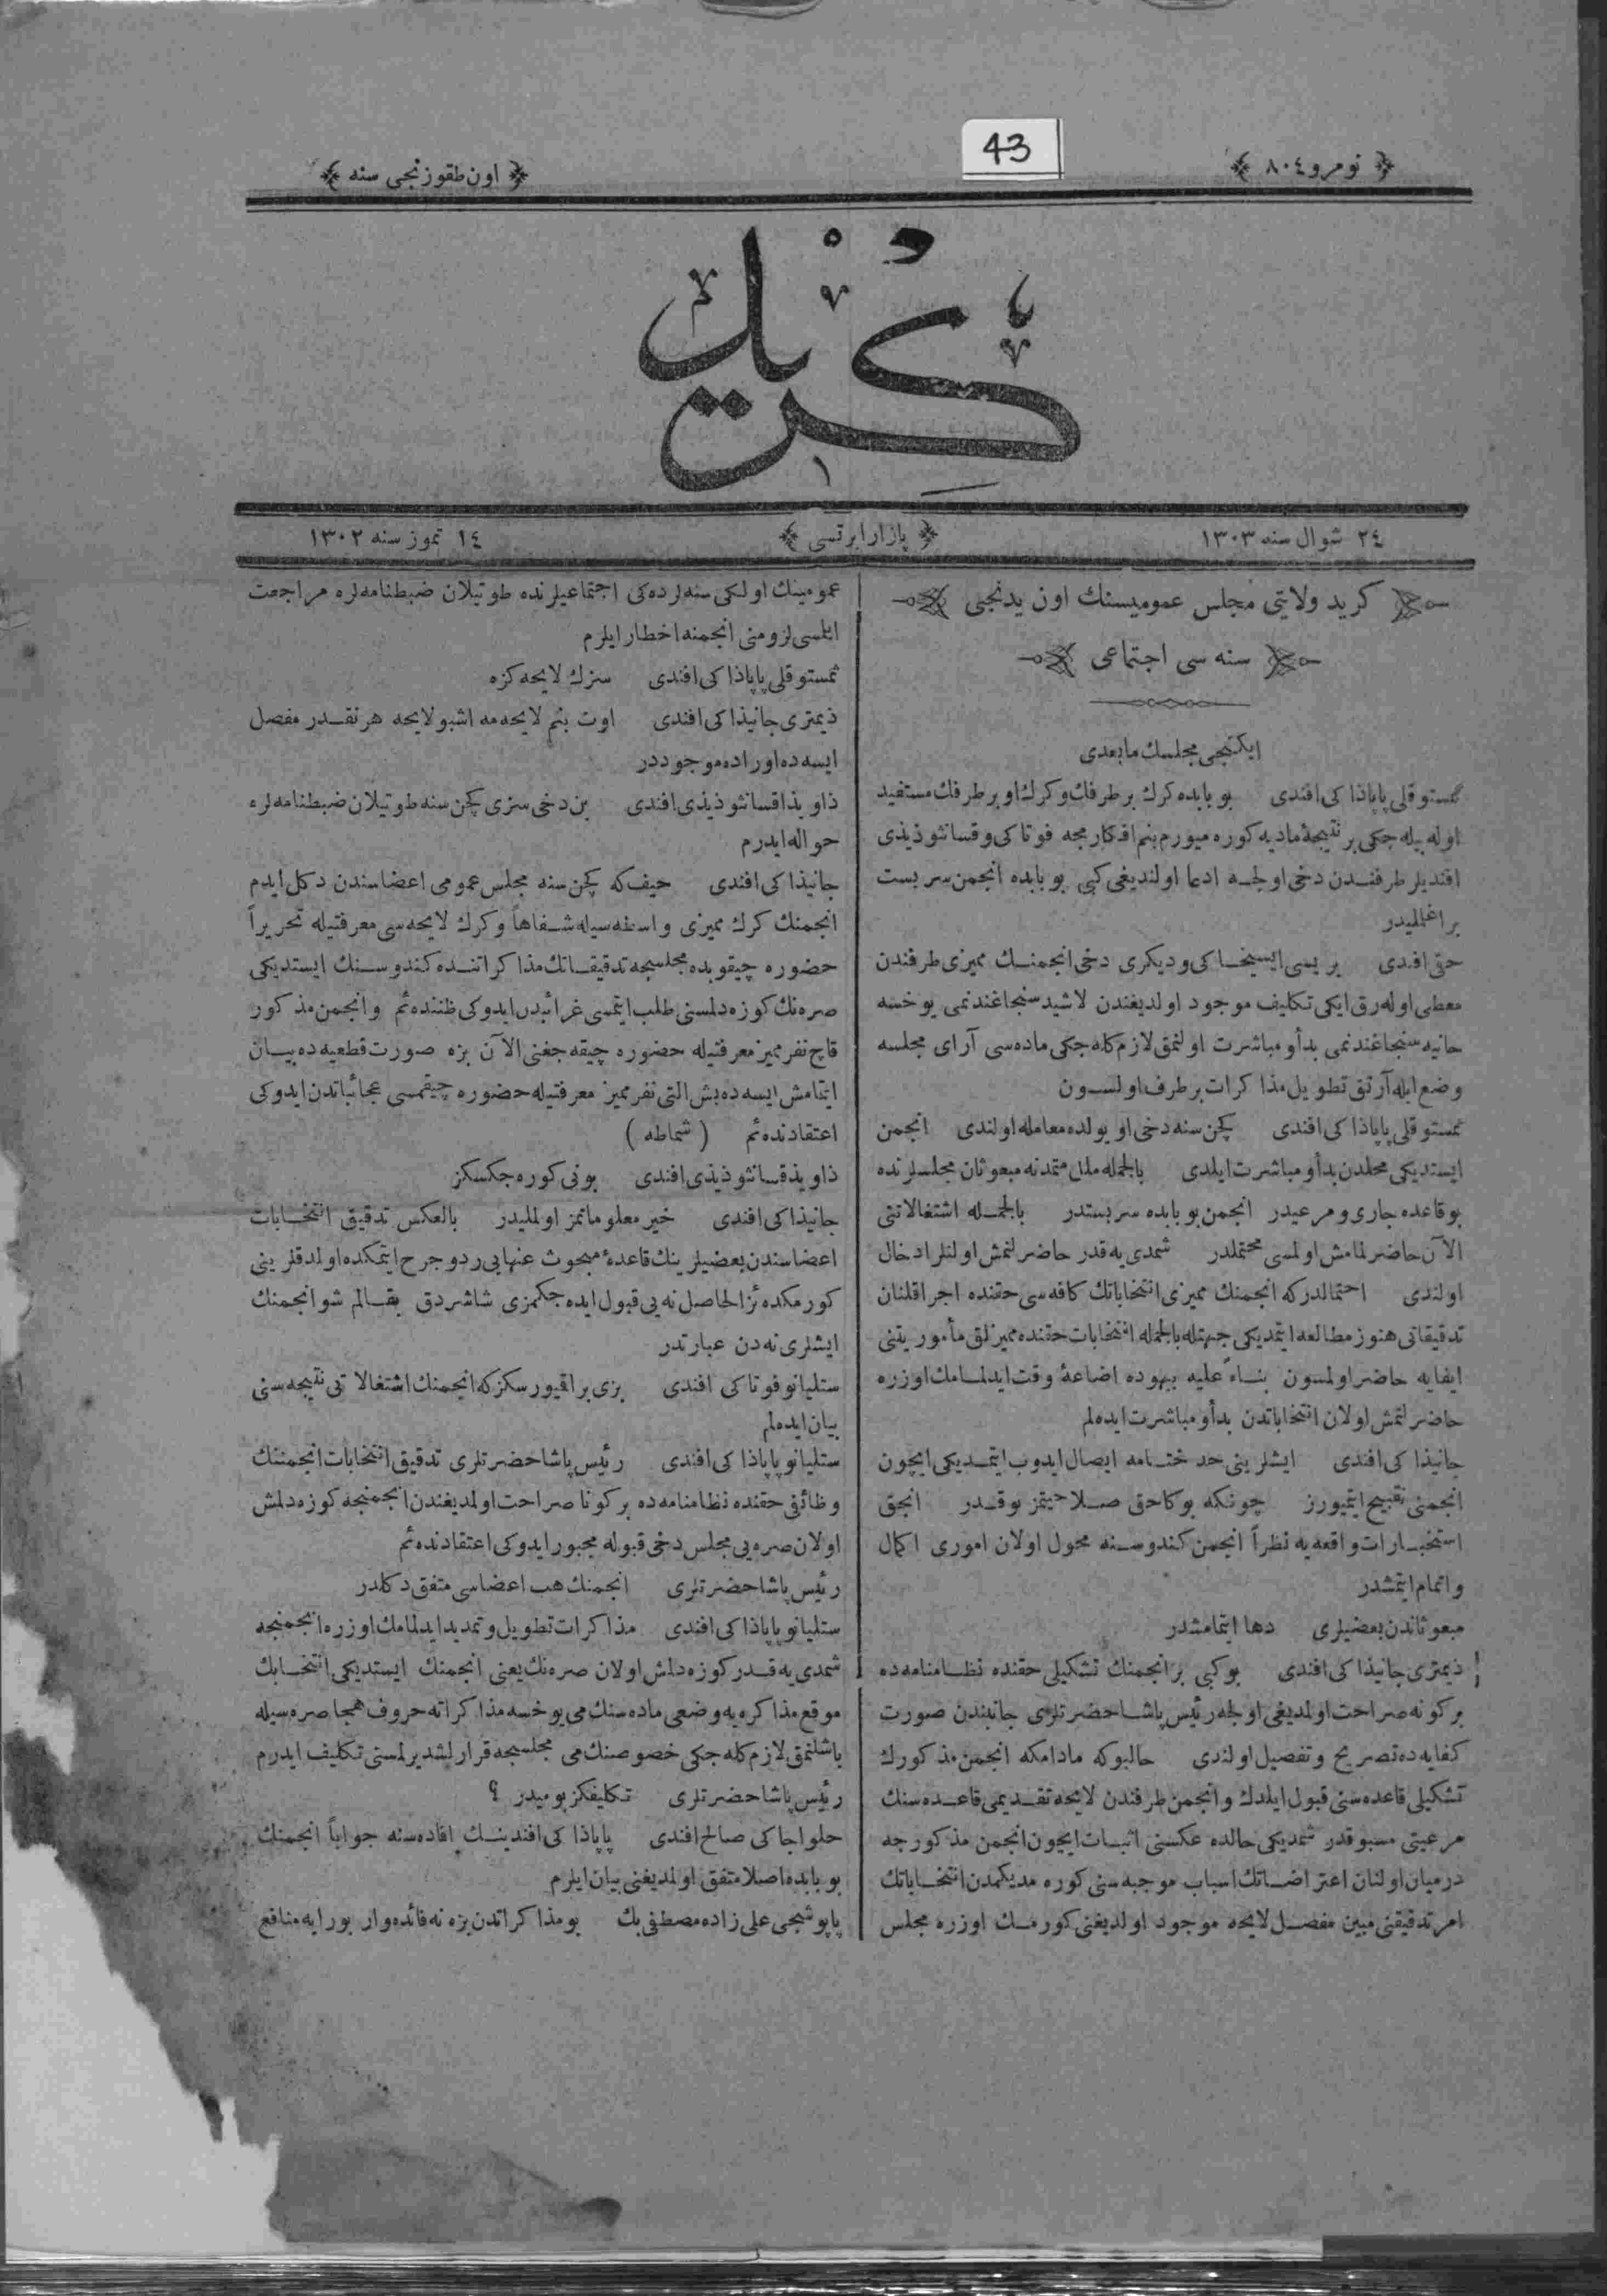 نومرو ٨٠٤
43
اون طقوزنجی سنه
كريد
٢٤ شوال سنه ١٣٠٣
پازار ايرتسی
١٤ تموز سنه ١٣٠٢
كريد ولايتی مجلس عموميسنك اون يدنجی
سنه سی اجتماعی
ايكنجی مجلسك مابعدی
ثمستوقلی پاپاذا كی افندی بو بابده كرك بر طرفك و كرك او بر طرفك مستفيد
اوله بيله جكی بر نتيجۀ ماديه كوره ميورم بنم افكارمجه فوتاكی و قسانثوذيذی
افنديلر طرفندن دخی اولجه ادعا اولنديغی كبی بو بابده انجمن سربست
براغلمليدر
حقی افندی بريسی ايسيخاكی و ديكری دخی انجمنك مميزی طرفندن
معطی اوله رق ايكی تكليف موجود اولديغندن لاشيد سنجاغندنمی يوخسه
حانيه سنجاغندنمی بدأ و مباشرت اولنمق لازم كله جكی ماده سی آرای مجلسه
وضع ايله آرتق تطويل مذا كرات بر طرف اولسون
ثمستوقلی پاپاذا كی افندی كچن سنه دخی او يولده معامله اولندی انجمن
ايستديكی محلدن بدأ و مباشرت ايلدی بالجمله ملل متمدنه مبعوثان مجلسلرنده
بو قاعده جاری و مرعيدر انجمن بو بابده سربستدر بالجمله اشتغالاتنی
الآن حاضرلمامش اولمسی محتملدر شمدی يه قدر حاضرلنمش اولنلر ادخال
اولندی احتمالدركه انجمنك مميزی انتخاباتك كافه سی حقنده اجرا قلنان
تدقيقاتی هنوز مطالعه ايتمديكی جهتله بالجمله انتخابات حقنده مميزلق مأموريتنی
ايفايه حاضر اولمسون بناءً عليه بيهوده اضاعۀ وقت ايدلمامك اوزره
حاضرلنمش اولان انتخاباتدن بدأ و مباشرت ايده لم
جانيذا كی افندی ايشلرينی حد ختامه ايصال ايدوب ايتمديكی ايچون
انجمنی تقبيح ايتميورز چونكه بوكا حق صلاحيتمز يوقدر انجق
استخبارات واقعه يه نظراً انجمن كندوسنه محول اولان اموری اكمال
و اتمام ايتمشدر
مبعوثاندن بعضيلری دها ايتمامشدر
ذيمتری جانيذا كی افندی بو كبی بر انجمنك تشكيلی حقنده نظامنامه ده
بر كونه صراحت اولمديغی اولجه رئيس پاشا حضرتلری جانبندن صورت
كفايه ده تصريح و تفصيل اولندی حالبوكه مادامكه انجمن مذكورك
تشكيلی قاعده سنی قبول ايلدك و انجمن طرفندن لايحه تقديمی قاعده سنك
مرعيتی مسبوقدر شمديكی حالده عكسنی اثبات ايچون انجمن مذكورجه
درميان اولنان اعتراضاتك اسباب موجبه سنی كوره مديكمدن انتخاباتك
امر تدقيقنی مبين مفصل لايحه موجود اولديغنی كورمك اوزره مجلس
عمومينك اولكی سنه لرده كی اجتماعيلرنده طوتيلان ضبطنامه لره مراجعت
ايلمسی لزومنی انجمنه اخطار ايلرم
ثمستوقلی پاپاذا كی افندی سزك لايحه كزه
ذيمتری جانيذا كی افندی اوت بنم لايحه مه اشبو لايحه هر نقدر مفصل
ايسه ده اوراده موجوددر
ذاويذ قسانثوذيذی افندی بن دخی سزی كچن سنه طوتيلان ضبطنامه لره
حواله ايدرم
جانيذا كی افندی حيف كه كچن سنه مجلس عمومی اعضاسندن دكل ايدم
انجمنك كرك مميزی واسطه سيله شفاهاً و كرك لايحه سی معرفتيله تحريراً
حضوره چيقوبده مجلسجه تدقيقاتك مذا كراتنده كندوسنك ايستديكی
صره نك كوزه دلمسنی طلب ايتمسی غرائبدن ايدوكی ظننده ئم و انجمن مذكور
قاچ نفر مميز معرفتيله حضوره چيقه جغنی الآن بزه صورت قطعيه ده بيان
ايتمامش ايسه ده بش التی نفر مميز معرفتيله حضوره چيقمسی عجائباتدن ايدوكی
اعتقادنده ئم ( شماطه )
ذاويذ قسانثوذيذی افندی بونی كوره جكسكز
جانيذا كی افندی خير معلوماتمز اولمليدر بالعكس تدقيق انتخابات
اعضاسندن بعضيلرينك قاعدۀ مبحوث عنهايی رد و جرح ايتمكده اولدقلرينی
كورمكده ئز الحاصل نه يی قبول ايده جكمزی شاشردق بقالم شو انجمنك
ايشلری نه دن عبارتدر
ستليانو فوتا كی افندی بزی براقيورسكزكه انجمنك اشتغالاتی نتيجه سنی
بيان ايده لم
ستليانو پاپاذا كی افندی رئيس پاشا حضرتلری تدقيق انتخابات انجمننك
وظائفی حقنده نظامنامه ده بر كونا صراحت اولمديغندن انجمنجه كوزه دلمش
اولان صره يی مجلس دخی قبوله مجبور ايدوكی اعتقادنده ئم
رئيس پاشا حضرتلری انجمنك هب اعضاسی متفق دكلدر
ستليانو پاپاذا كی افندی مذا كرات تطويل و تمديد ايدلمامك اوزره انجمنجه
شمدی يه قدر كوزه دلمش اولان صره نك يعنی انجمنك ايستديكی انتخابك
موقع مذا كره يه وضعی ماده سنك می يوخسه مذا كراته حروف هجا صره سيله
باشلنمق لازم كله جكی خصوصنك می مجلسجه قرارلشديرلمسنی تكليف ايدرم
رئيس پاشا حضرتلری تكليفكز بوميدر ؟
حلواجا كی صالح افندی پاپاذا كی افندينك افاده سنه جواباً انجمنك
بو بابده اصلا متفق اولمديغنی بيان ايلرم
پاپوشجی علی زاده مصطفی بك بو مذا كراتدن بزه نه فائده وار بورايه منافع